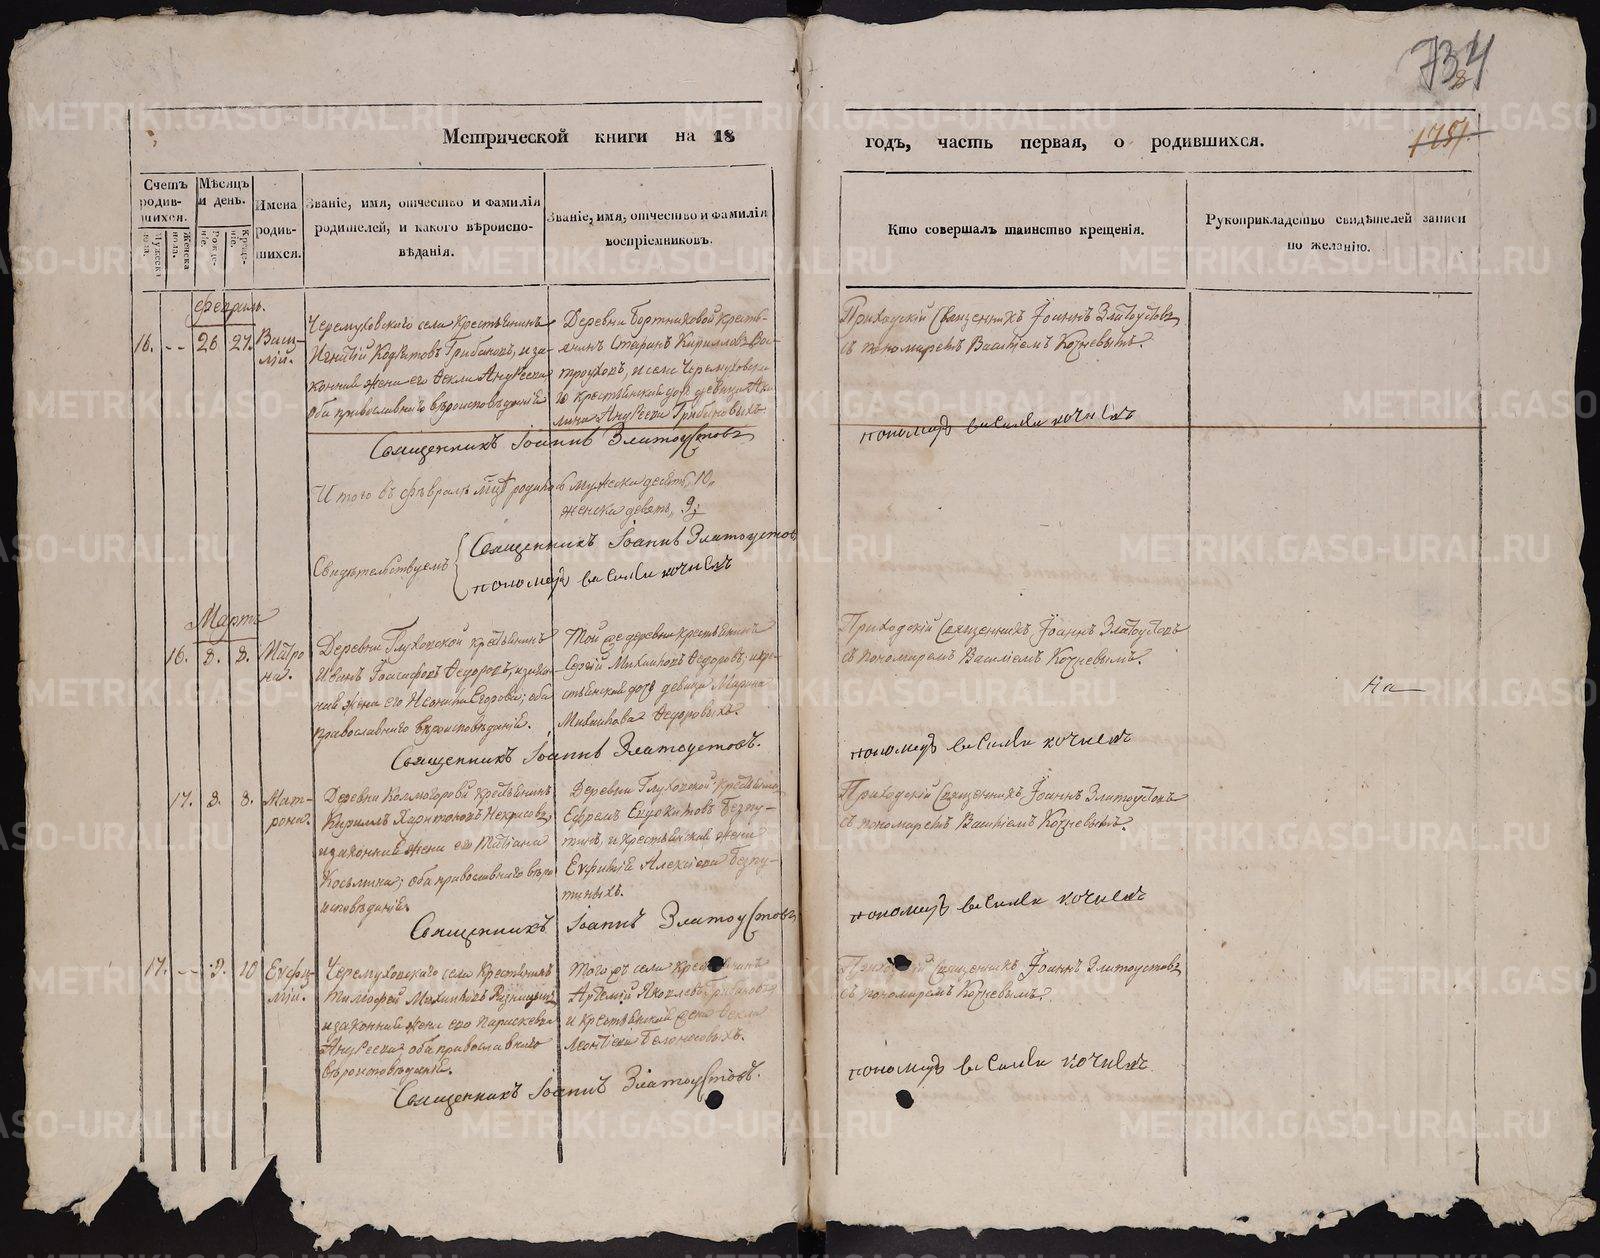 734
8
1751
Метрической книги на 18
годъ, часть первая, о родившихся.
Счетъ родив-шихся.
Мужеска пола.
Женска пола.
Мѣсяцъ и день.
Рожденіе.
Крещеніе.
Имена родив-шихся.
Званіе, имя, отчество и фамилія
родителей, и какого вѣроиспо-
вѣданія.
Званіе, имя, отчество и фамилія
воспріемниковъ.
Кто совершалъ таинство крещенія.
Рукоприкладство свидѣтелей записи
по желанію.
Февраль.
16. -- 26 27. Васи-
лій.
Черемховскаго села крестьянинъ
Игнатій Грибановъ, и за-
конная жена его Ѳекла Андреева
оба православнаго вѣроисповѣданія
Деревни Бортниковой кресть-
янинъ Кирилловъ Вос-
троуховъ, и села Черемховска-
го крестьянская дочь девица Аку-
лина Андреева Грибановыхъ
Приходскій Священникъ Іоаннъ Златоустовъ
съ пономаремъ Василіемъ Кочневымъ.
Священникъ Іоаннъ Златоустовъ
пономарь василеи кочневъ
Итого въ февралѣ мцѣ родилось мужеска десять, 10,
женска девять, 9;
Свидѣтельствуемъ
Священникъ Іоаннъ Златоустовъ
пономарь василеи кочневъ
Марта
16. 8. 8. Матро
на.
Деревни Глуховской крестьянинъ
Иванъ Іоасафовъ Ѳедоровъ, и закон-
ная жена его Егорова; оба
православнаго вѣроисповѣданія.
Той же деревни крестьянинъ
Сергій Ѳедоровъ, и кре-
стьянская дочь девица Марина
Ѳедоровыхъ.
Приходскій Священникъ Іоаннъ Златоустовъ
съ пономаремъ Василіемъ Кочневымъ.
На
Священникъ Іоаннъ Златоустовъ.
пономарь василеи кочневъ
17. 8. 8. Мат-
рона.
Деревни Колмогоровой крестьянинъ
Кириллъ Харитоновъ Некрасовъ,
и законная жена его Татіана
Косьмина; оба православнаго вѣро
исповѣданія.
Деревни Глуховской крестьянинъ
Ефремъ Евдокимовъ Безпу-
тинъ, и крестьянская жена
Алексіева Безпу-
тиныхъ.
Приходскій Священникъ Іоаннъ Златоустовъ
съ пономаремъ Василіемъ Кочневымъ.
Священникъ Іоаннъ Златоустовъ
пономарь василеи кочневъ
17. -- 9. 10 Евфи-
мій.
Черемховскаго села крестьянинъ
Тимофей
и законная жена его Параскева
Андреева оба православнаго
вѣроисповѣданія.
Того жъ села крестьянинъ
Артемій Яковлевъ Грибановъ
и крестьянская жена Ѳекла
Леонтіева Белоносовыхъ.
Приходскій Священникъ Іоаннъ Златоустовъ
съ пономаремъ Кочневымъ.
Священникъ Іоаннъ Златоустовъ.
пономарь василеи кочневъ
METRIKI.GASO-URAL.RU